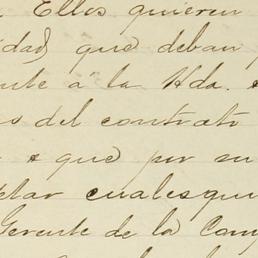 Ellos quieren
idad, que deban
nte a la Hda.
s del contrato
e que por su
ptar cualesqui
Gerente de la Com